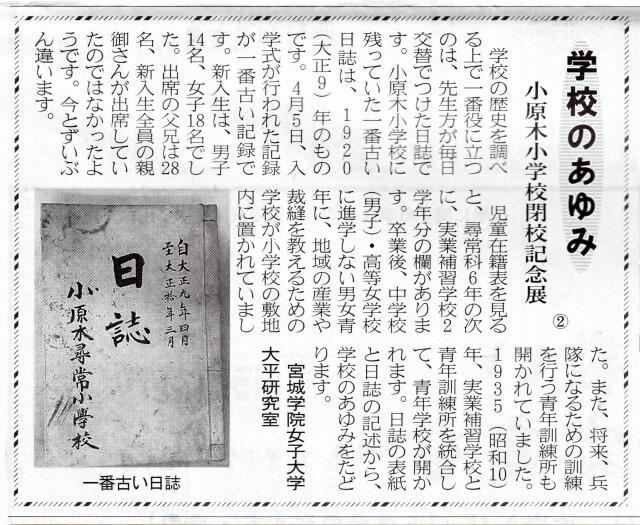 学校のあゆみ
小原木小学校閉校記念展
②
学校の歴史を調べ
る上で一番役に立つ
のは、先生方が毎日
交替でつけた日誌で
す。小原木小学校に
残っていた一番古い
日誌は、1920
(大正9)年のもの
です。4月5日、入
学式が行われた記録
が一番古い記録で
す。新入生は、男子
14名、女子18名でし
た。出席の父兄は28
名、新入生全員の親
御さんが出席してい
たのではなかったよ
うです。今とずいぶ
ん違います。
児童在籍表を見る
と、尋常科6年の次
に、実業補習学校2
学年分の欄がありま
す。卒業後、中学校
(男子)・高等女学校
に進学しない男女青
年に、地域の産業や
裁縫を教えるための
学校が小学校の敷地
内に置かれていまし
た。また、将来、兵
隊になるための訓練
を行う青年訓練所も
開かれていました。
1935(昭和10)
年、実業補習学校と
青年訓練所を統合し
て、青年学校が開か
れます。日誌の表紙
と日誌の記述から、
学校のあゆみをたど
ります。
宮城学院女子大学
大平研究室
自大正九年四月
至大正拾年三月
日誌
小原木尋常小學校
一番古い日誌